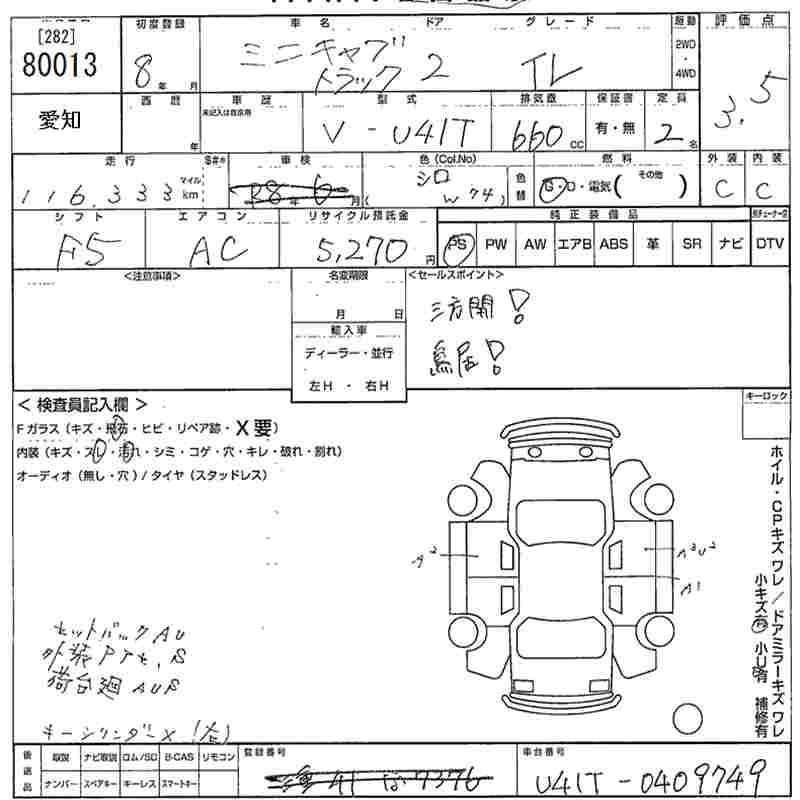 [282]
80013
愛知
初度登録
8年 月
車名 ドア グレード
ミニキャブ
トラック 2 TL
駆動
2WD
・
4WD
評価点
3.5
西暦
年
車歴
未記入は自家用
型式
V - U41T
排気量
660 CC
保証書
有・無
定員
2名
走行
116,333
マイル
km
車検
R8年 6月
色(Col.No)
シロ
( W74 )
色替
燃料
G・D・電気( その他 )
外装
C
内装
C
シフト
F5
エアコン
AC
リサイクル預託金
5,270円
純正装備品
PS PW AW エアB ABS 革 SR ナビ DTV
<注意事項>
名変期限
月 日
輸入車
ディーラー・並行
左H ・ 右H
<セールスポイント>
三方開!
鳥居!
< 検査員記入欄 >
Fガラス (キズ・飛石・ヒビ・リペア跡・X要)
内装 (キズ・スレ・汚れ・シミ・コゲ・穴・キレ・破れ・割れ)
オーディオ (無し・穴) / タイヤ (スタッドレス)
キーロック
A2
A3U2
A1
ホイル・CPキズ ワレ / ドアミラーキズ ワレ
小キズ有 小U有 補修有
セットバックAU
外装PTセ.S
荷台廻AUS
キーシリンダーX (右)
後送品
取説 ナビ取説 ロム/SD B-CAS リモコン
ナンバー スペアキー キーレス スマートキー
登録番号
41 7376
車台番号
U41T-0409749